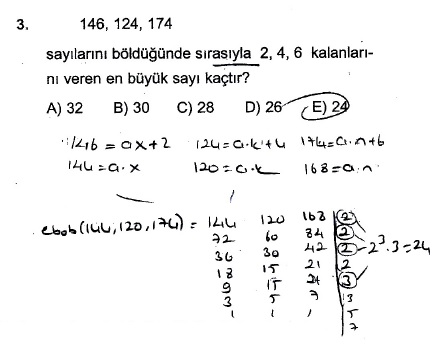 3. 146, 124, 174
sayılarını böldüğünde sırasıyla 2, 4, 6 kalanları-
nı veren en büyük sayı kaçtır?
A) 32 B) 30 C) 28 D) 26 E) 24
146 = ax+2 124=a.k+4 174=a.n+6
144=a.x 120=a.k 168=a.n
ebob(144,120,174) = 144 120 168 2
72 60 84 2
36 30 42 2 2³.3=24
18 15 21 2
9 15 21 3
3 5 7 3
1 1 1 5
7